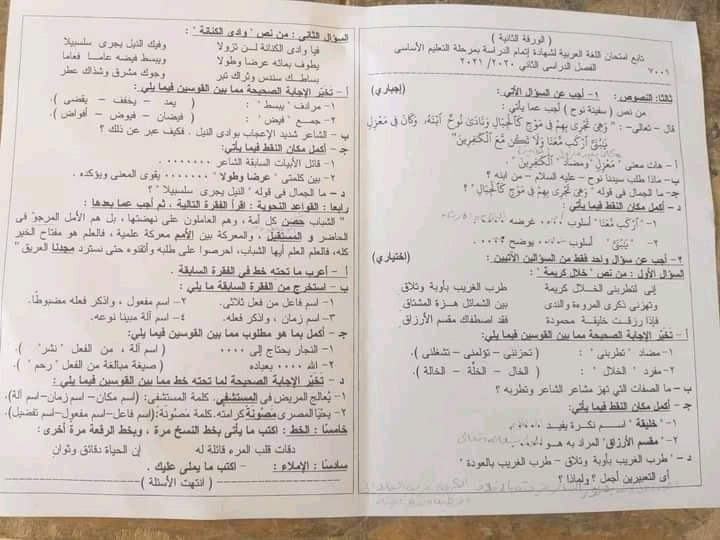 ( الورقة الثانية )
تابع امتحان اللغة العربية لشهادة إتمام الدراسة بمرحلة التعليم الأساسى
٧٠٠٦ الفصل الدراسى الثانى ٢٠٢٠/ ٢٠٢١
ثالثا: النصوص : ١- أجب عن السؤال الآتي: (إجباري)
من نص ( سفينة نوح ) أجب عما يأتي:
قال – تعالى-: " وَهِىَ تَجْرِى بِهِمْ فِى مَوْجٍ كَٱلْجِبَالِ وَنَادَىٰ نُوحٌ ٱبْنَهُۥ وَكَانَ فِى مَعْزِلٍ
يَـٰبُنَىَّ ٱرْكَب مَّعَنَا وَلَا تَكُن مَّعَ ٱلْكَـٰفِرِينَ"
أ- هات معنى " مَعْزِلٍ" ومضاد " ٱلْكَـٰفِرِينَ" .
ب- ماذا طلب سيدنا نوح – عليه السلام – من ابنه ؟
ج- ما الجمال في قوله "وَهِىَ تَجْرِى بِهِمْ فِى مَوْجٍ كَٱلْجِبَالِ" ؟
د- أكمل مكان النقط فيما يأتي:
١- " ٱرْكَب مَّعَنَا" أسلوب .... غرضه ....
٢- " يَـٰبُنَىَّ " أسلوب .... يوضح ....
٢- أجب عن سؤال واحد فقط من السؤالين الآتيين : (اختياري)
السؤال الأول : من نص " خلال كريمة " :
إنى لتطربنى الخلال كريمة طرب الغريب بأوبة وتلاق
وتهزنى ذكرى المروءة والندى بين الشمائل هزة المشتاق
فإذا رزقت خليقة محمودة فقد اصطفاك مقسم الأرزاق
أ- تخيَّر الإجابة الصحيحة مما بين القوسين فيما يلي:
١- مضاد " تطربنى " : ( تحزننى – تؤلمنى – تشغلنى ).
٢- مفرد " الخلال " : ( الخال – الخلَّة – الخالة ).
ب – ما الصفات التي تهز مشاعر الشاعر وتطربه ؟
ج- أكمل مكان النقط فيما يأتي:
١- " خليقة " اســم نكرة يفيــد ....
٢- " مقسم الأرزاق" المراد به هو....
د – " طرب الغريب بأوبة وتلاق – طرب الغريب بالعودة "
أى التعبيرين أجمل ؟ ولماذا ؟
السؤال الثانى : من نص " وادى الكنانة " :
فيا وادى الكنانة لن تزولا وفيك النيل يجرى سلسبيلا
يطوف بمائه عرضا وطولا ويبسط فيضه عاما فعاما
بساطك سندس وثراك تبر وجوك مشرق وشذاك عطر
أ – تخيَّر الإجابة الصحيحة مما بين القوسين فيما يلي :
١- مرادف " يبسط " : ( يمد – يخفف – يقضى ).
٢- جمــع " فيض " : ( فيضان – فيوض – أفواض ).
ب – الشاعر شديد الإعجاب بوادى النيل . فكيف عبر عن ذلك ؟
ج- أكمل مكان النقط فيما يأتي:
١- قائل الأبيات السابقة الشاعر .......
٢- بين كلمتى " عرضا وطولا " ....... يقوى المعنى ويؤكده .
د – ما الجمال في قوله "النيل يجرى سلسبيلا" ؟
رابعا : القواعد النحوية : اقرأ الفقرة التالية ، ثم أجب عما بعدها :
" الشباب حصن كل أمة ، وهم العاملون على نهضتها ، بل هم الأمل المرجوّ فى
الحاضر و المستقبل ، والمعركة بين الأمم معركة علمية ، فالعلم هو مفتاح الخير
كله، فالعلم العلم أيها الشباب، احرصوا على طلبه وأتقنوه حتى نسترد مجدنا العريق"
أ – أعرب ما تحته خط فى الفقرة السابقة .
ب – استخرج من الفقرة السابقة ما يلى :
١- اسم فاعل من فعل ثلاثى. ٢- اسم مفعول ، واذكر فعله مضبوطًا.
٣- اسم زمان ، واذكر فعله. ٤- اسم آلة مبينا نوعه.
ج- أكمل بما هو مطلوب مما بين القوسين فيما يلي:
١- النجار يحتاج إلى .... ( اسم آلة ، من الفعل " نشر" ).
٢- الله .... بعباده ( صيغة مبالغة من الفعل " رحم ").
د – تخيَّر الإجابة الصحيحة لما تحته خط مما بين القوسين فيما يلي:
١- يُعالج المريض فى المستشفى. كلمة المستشفى: (اسم مكان– اسم زمان–اسم آلة).
٢- يحيَا المصرى مَصُونَةً كرامته. كلمة مَصُونَةً: (اسم فاعل–اسم مفعول–اسم تفضيل).
خامسًا : الخط : اكتب ما يأتى بخط النسخ مرة ، وبخط الرقعة مرة أخرى :
دقات قلب المرء قائلة له إن الحياة دقائق وثوان
سادسًا : الإملاء : – اكتب ما يملى عليك .
( انتهت الأسئلة )